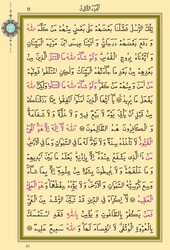 تِلْكَ الرُّسُلُ فَضَّلْنَا بَعْضَهُمْ عَلَىٰ بَعْضٍ مِنْهُمْ مَنْ كَلَّمَ اللَّهُ
وَرَفَعَ بَعْضَهُمْ دَرَجَاتٍ وَآتَيْنَا عِيسَى ابْنَ مَرْيَمَ الْبَيِّنَاتِ
وَأَيَّدْنَاهُ بِرُوحِ الْقُدُسِ وَلَوْ شَاءَ اللَّهُ مَا اقْتَتَلَ الَّذِينَ مِنْ
بَعْدِهِمْ مِنْ بَعْدِ مَا جَاءَتْهُمُ الْبَيِّنَاتُ وَلَٰكِنِ اخْتَلَفُوا فَمِنْهُمْ
مَنْ آمَنَ وَمِنْهُمْ مَنْ كَفَرَ وَلَوْ شَاءَ اللَّهُ مَا اقْتَتَلُوا وَلَٰكِنَّ اللَّهَ يَفْعَلُ
مَا يُرِيدُ يَا أَيُّهَا الَّذِينَ آمَنُوا أَنْفِقُوا مِمَّا رَزَقْنَاكُمْ
مِنْ قَبْلِ أَنْ يَأْتِيَ يَوْمٌ لَا بَيْعٌ فِيهِ وَلَا خُلَّةٌ وَلَا شَفَاعَةٌ
وَالْكَافِرُونَ هُمُ الظَّالِمُونَ اللَّهُ لَا إِلَٰهَ إِلَّا هُوَ الْحَيُّ
الْقَيُّومُ لَا تَأْخُذُهُ سِنَةٌ وَلَا نَوْمٌ لَهُ مَا فِي السَّمَاوَاتِ وَمَا فِي
الْأَرْضِ مَنْ ذَا الَّذِي يَشْفَعُ عِنْدَهُ إِلَّا بِإِذْنِهِ يَعْلَمُ مَا بَيْنَ
أَيْدِيهِمْ وَمَا خَلْفَهُمْ وَلَا يُحِيطُونَ بِشَيْءٍ مِنْ عِلْمِهِ إِلَّا بِمَا شَاءَ
وَسِعَ كُرْسِيُّهُ السَّمَاوَاتِ وَالْأَرْضَ وَلَا يَئُودُهُ حِفْظُهُمَا وَهُوَ الْعَلِيُّ
الْعَظِيمُ لَا إِكْرَاهَ فِي الدِّينِ قَدْ تَبَيَّنَ الرُّشْدُ مِنَ الْغَيِّ
فَمَنْ يَكْفُرْ بِالطَّاغُوتِ وَيُؤْمِنْ بِاللَّهِ فَقَدِ اسْتَمْسَكَ
بِالْعُرْوَةِ الْوُثْقَىٰ لَا انْفِصَامَ لَهَا وَاللَّهُ سَمِيعٌ عَلِيمٌ